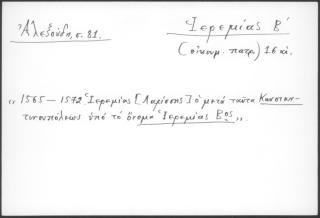 Ἀλεξούδη, σ. 81.
Ἱερεμίας Β΄
(οἰκουμ. πατρ.) 16 αἰ.
„ 1565 – 1572 Ἱερεμίας [Λαρίσσης] ὁ μετά ταῦτα Κωνσταν-
τινουπόλεως ὑπό τό ὄνομα Ἱερεμίας Βος „.